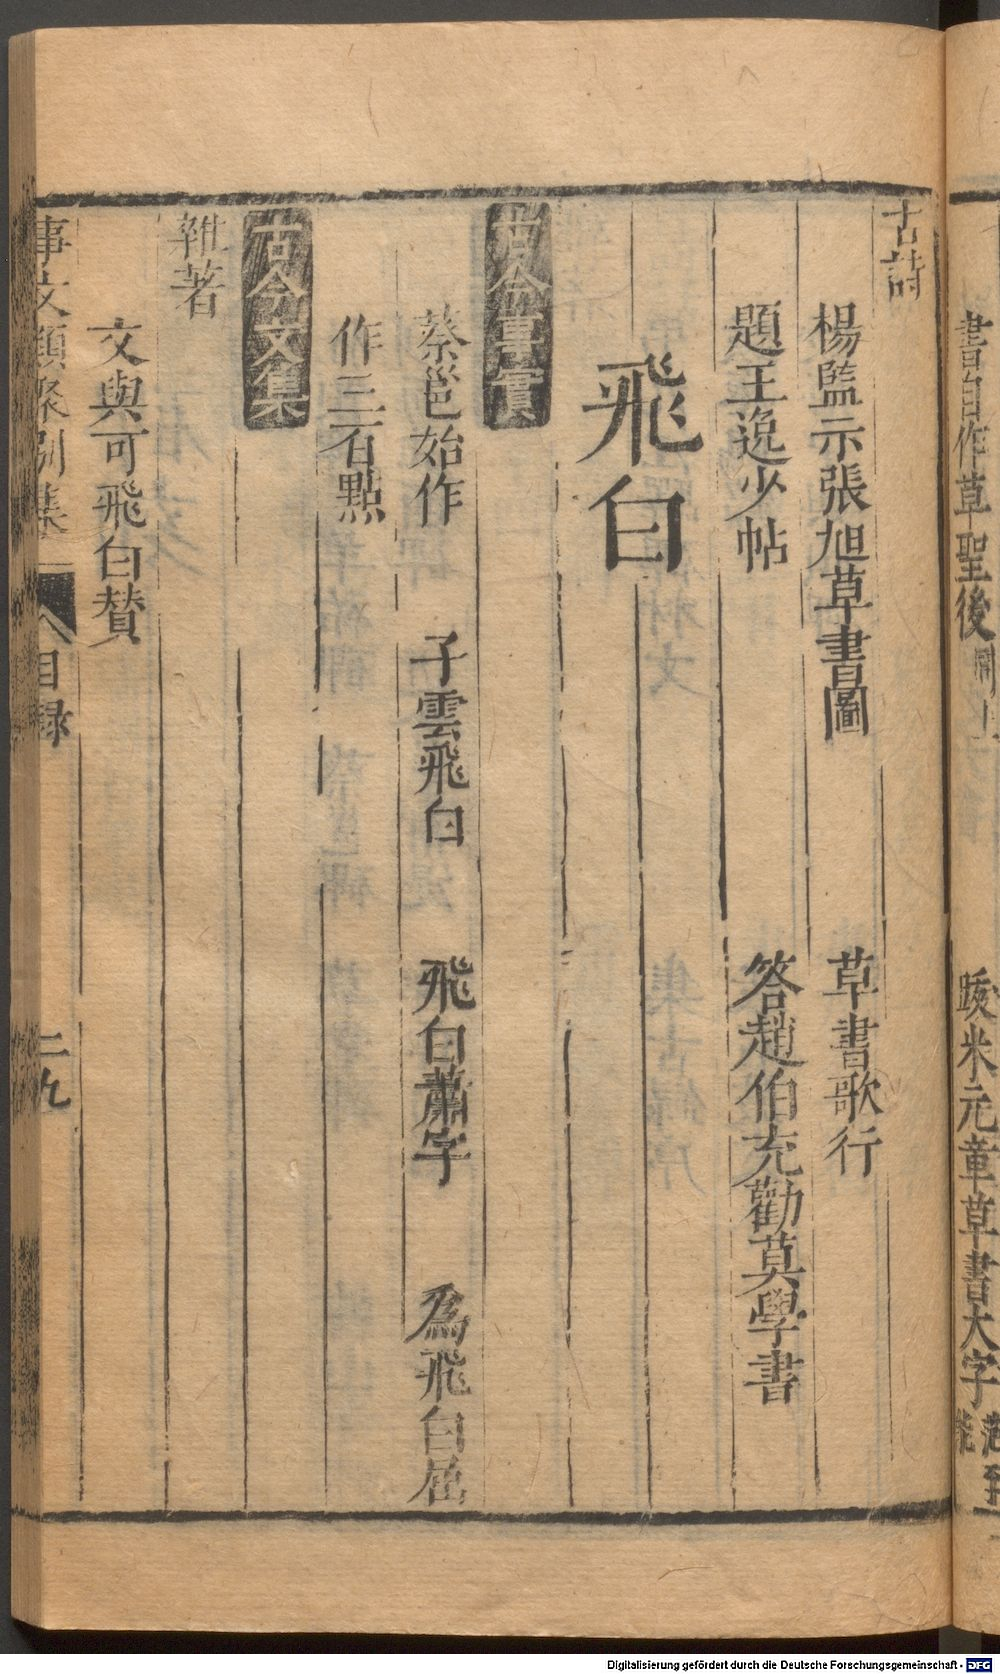 書自作草聖後
跋米元章草書大字
古詩
楊監示張旭草書圖 草書歌行
題王逸少帖 答趙伯充勸莫學書
飛白
古今事實
蔡邕始作 子雲飛白 飛白蕭字 為飛白屈
作三百點
古今文集
雜著
文與可飛白贊
事文類聚別集 目録 二九
Digitalisierung gefördert durch die Deutsche Forschungsgemeinschaft - DFG